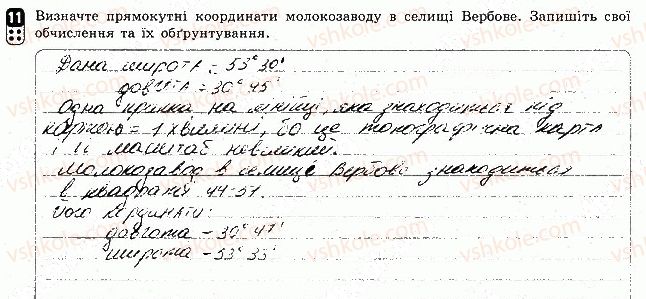 11 Визначте прямокутні координати молокозаводу в селищі Вербове. Запишіть свої
обчислення та їх обґрунтування.
Дана широта = 53° 30'
довгота = 30° 45'
Одна крапка на лінійці, яка знаходиться під
карткою = 1 хвилині, бо це топографічна карта
і її масштаб невеликий.
Молокозавод в селище Вербове знаходиться
в квадраті 44-51.
Його координати:
довгота - 30° 47'
широта - 53° 33'
vshkole.com